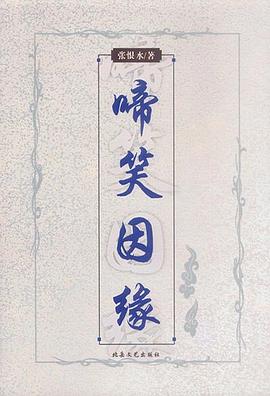 张恨水/著
啼笑因缘
北岳文艺出版社